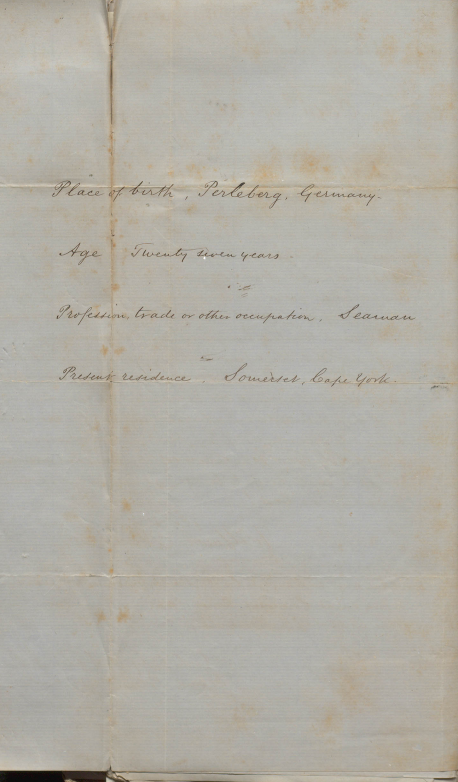 Place of birth, Perleberg, Germany.
Age Twenty seven years.
Profession, trade or other occupation. Seaman
Present residence. Somerset, Cape York.